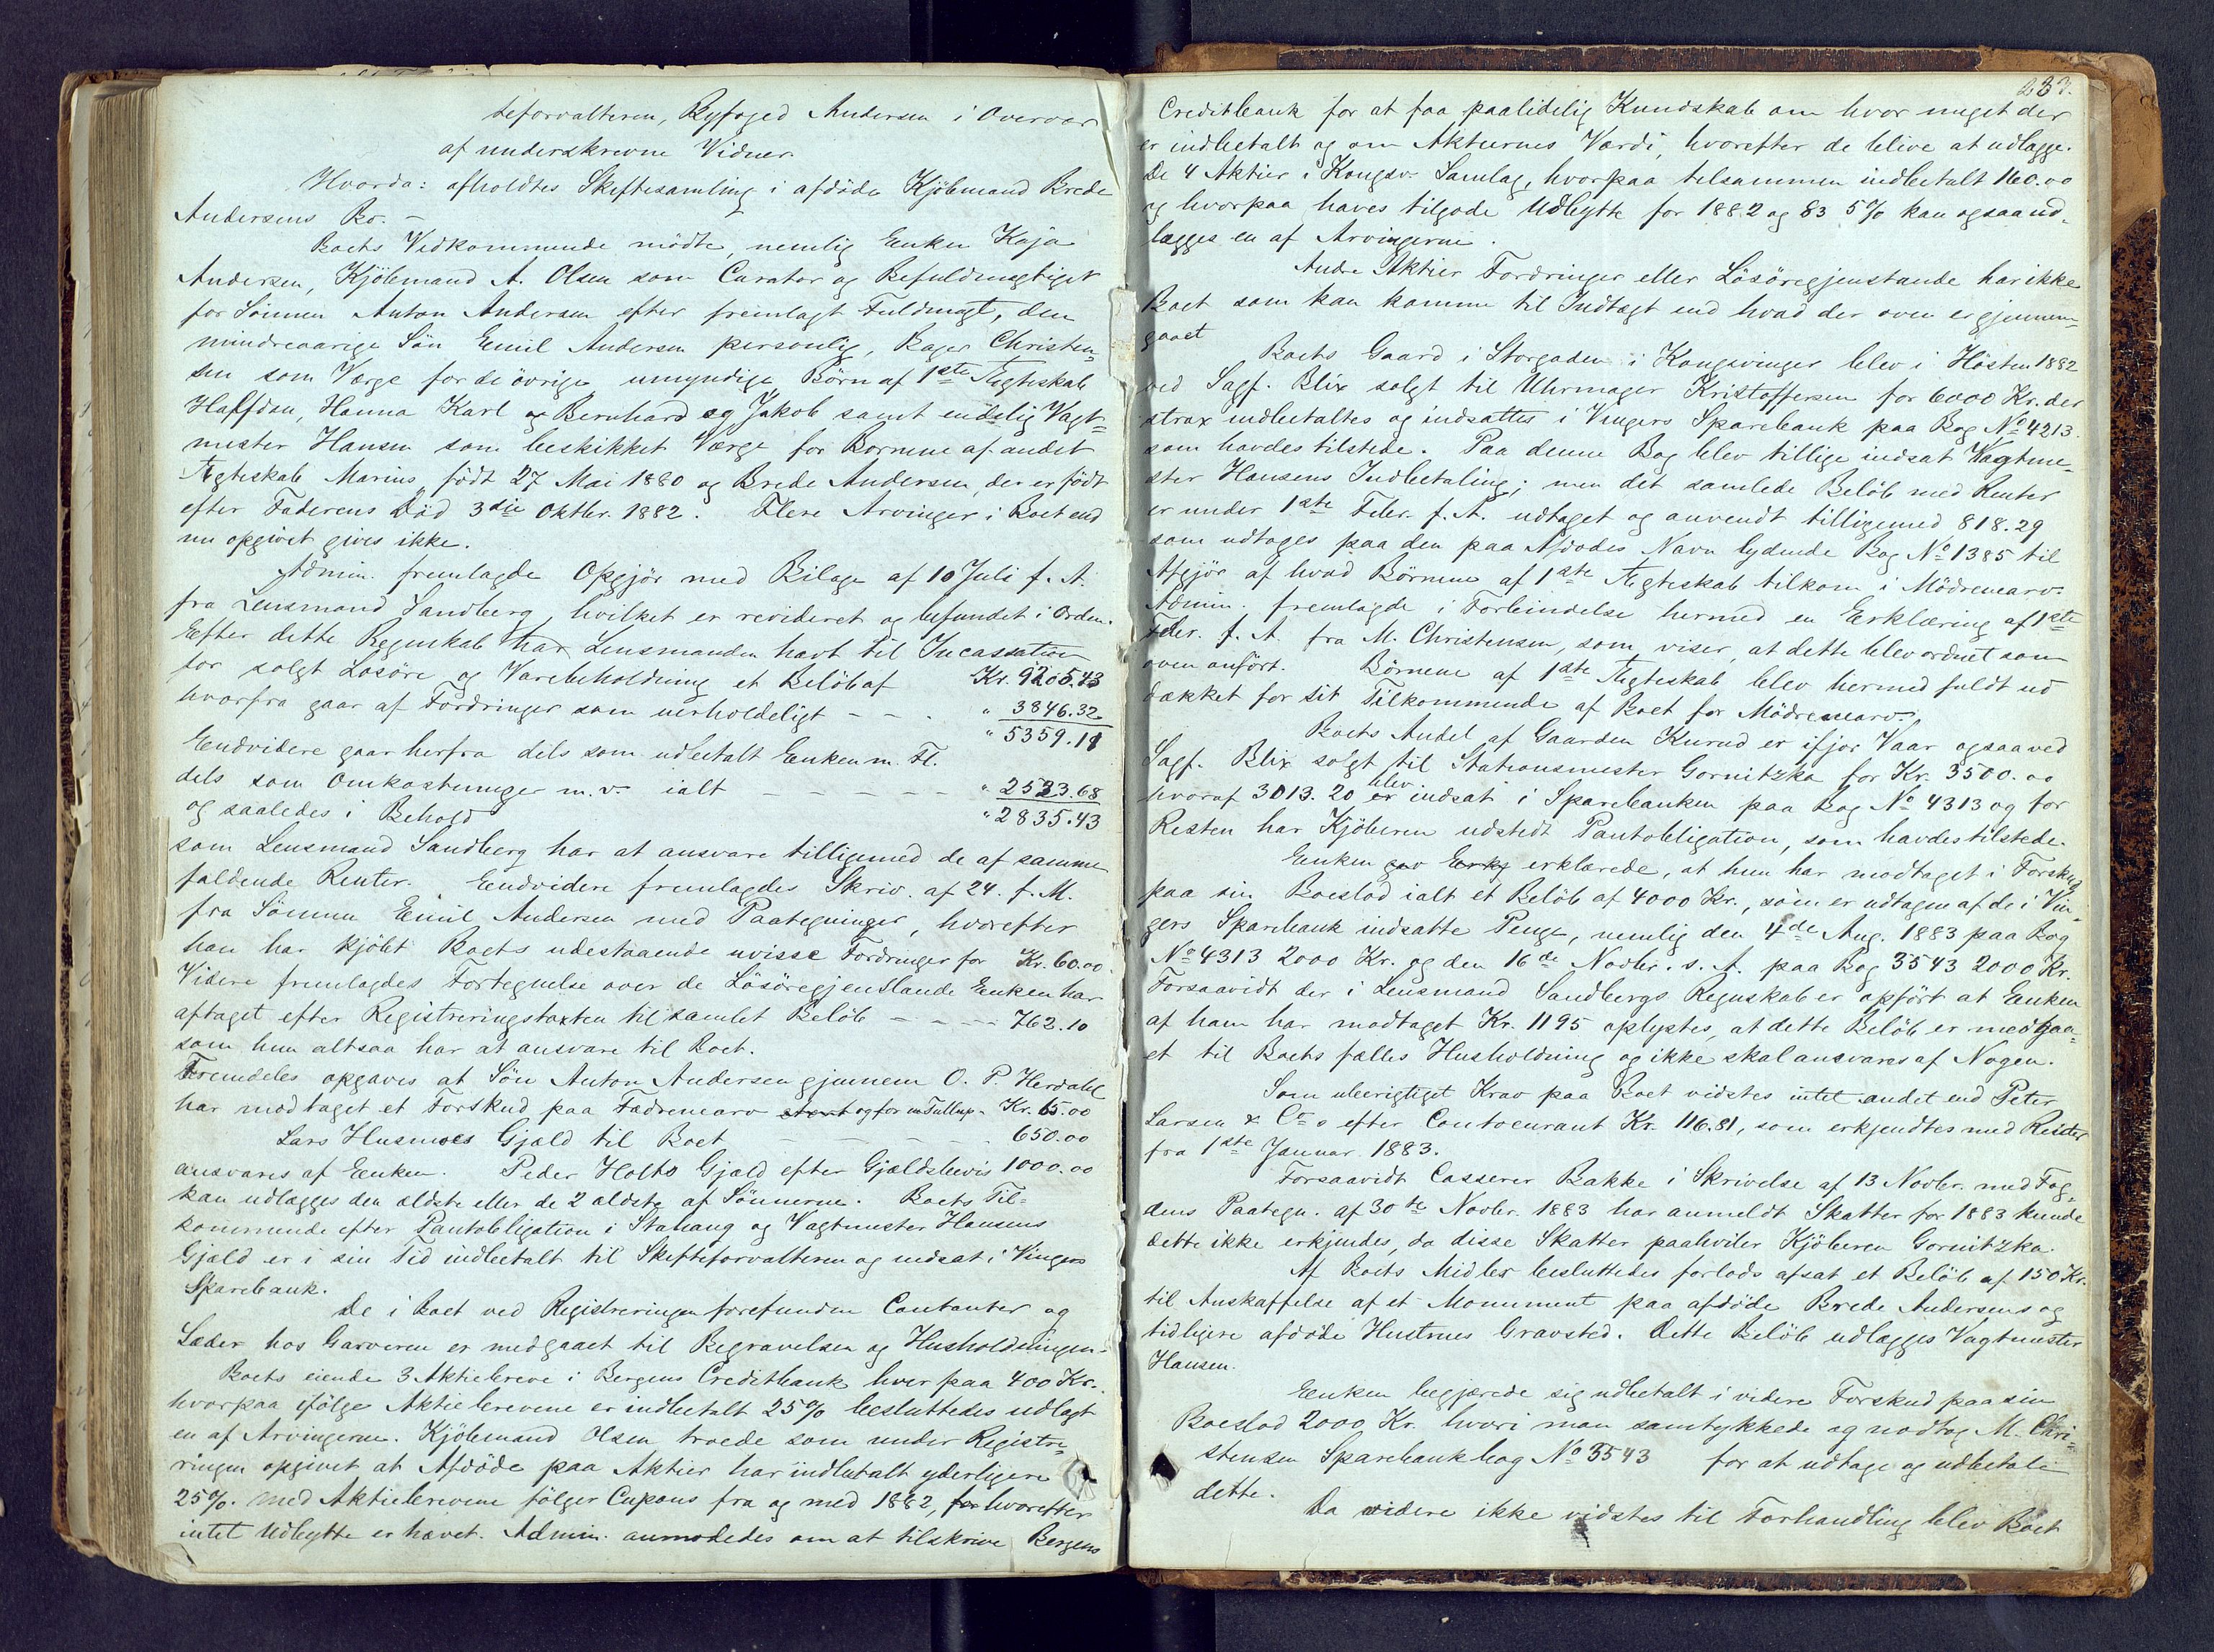 teforvalteren, Byfoged Andersen i Overvær
af underskrevne Vidner.
Hvorda: afholdtes Skiftesamling i afdöde Kjöbmand Brede
Andersens Bo. –
Boets Vedkommende mödte, nemlig Enken Kaja
Andersen, Kjöbmand A. Olsen som Curator og Befuldmægtiget
for Sönnen Anton Andersen efter fremlagt Fuldmagt, den
mindreaarige Sön Emil Andersen personlig, Bager Christen-
sen som Værge for de övrige umyndige Börn af 1ste Ægteskab
Halfdan, Hanna Karl og Bernhard og Jakob samt endelig Vagt-
mester Hansen som beskikket Værge for Börnene af andet
Ægteskab Marius födt 27 Mai 1880 og Brede Andersen, der er födt
efter Faderens Död 3die Oktbr. 1882. Flere Arvinger i Boet end
nu opgivet gives ikke.
Admin. fremlagde Opgjör med Bilage af 10 Juli f. A.
fra Lensmand Sandberg, hvilket er revideret og befundet i Orden.
Efter dette Regnskab har Lensmanden havt til Incassation
for solgt Lösöre og Varebeholdning et Belöb af Kr. 9205.43
hvorfra gaar af Fordringer som uerholdeligt – – . " 3846.32
" 5359.11
Endvidere gaar herfra dels som udbetalt Enken m. Fl.
dels som Omkostninger m. v. ialt – – – – – " 2523.68
og saaledes i Behold " 2835.43
som Lensmand Sandberg har at ansvare tilligemed de af samme
faldende Renter. Endvidere fremlagdes Skriv. af 24. f. M.
fra Sönnen Emil Andersen med Paategninger, hvorefter
han har kjöbt Boets udestaaende uvisse Fordringer for Kr. 60.00.
Videre fremlagdes Fortegnelse over de Lösöregjenstande Enken har
aftaget efter Registreringstaxten til samlet Belöb – – – – 762.10
som hun altsaa har at ansvare til Boet.
Fremdeles opgaves at Sön Anton Andersen gjennem O. P. Herdahl
har modtaget et Forskud paa Fædrenearv og for Kr. 65.00
Lars Husmoes Gjæld til Boet – – – – – . 650.00
ansvares af Enken. Peder Holts Gjæld efter Gjældsbevis 1000.00
kan udlægges den ældste eller de 2 ældste af Sönnerne. Boets Til-
kommende efter Pantobligation i Stahaug og Vagtmester Hansens
Gjæld er i sin Tid indbetalt til Skifteforvalteren og indsat i Vingers
Sparebank.
De i Boet ved Registreringen forefundne Contanter og
Læder hos Garveren er medgaaet til Begravelsen og Husholdningen-
Boets eiende 3 Aktiebreve i Bergens Creditbank hver paa 400 Kr.
hvorpaa ifölge Aktiebrevene er indbetalt 25% besluttedes udlagt
en af Arvingerne. Kjöbmand Olsen troede som under Registre-
ringen opgivet at Afdöde paa Aktier har indbetalt yderligere
25%. Med Aktiebrevene fölger Cupons fra og med 1882, for hvorefter
intet Udbytte er hævet. Admin. anmodedes om at tilskrive Bergens
233.
Creditbank for at faa paalidelig Kundskab om hvor meget der
er indbetalt og om Aktiernes Værdi, hvorefter de blive at udlægge.
De 4 Aktier i Kongsv. Samlag, hvorpaa tilsammen indbetalt 160.00
og hvorpaa haves tilgode Udbytte for 1882 og 83 5% kan ogsaa ud-
lægges en af Arvingerne.
Andre Aktier Fordringer eller Lösöregjenstande har ikke
Boet som kan komme til Indtægt end hvad der oven er gjennem-
gaaet
Boets Gaard i Storgaden i Kongsvinger blev i Hösten 1882
ved Sagf. Blix solgt til Uhrmager Kristoffersen for 6000 Kr. der
strax indbetaltes og indsattes i Vingers Sparebank paa Bog No 4213.
som havdes tilstede. Paa denne Bog blev tillige indsat Vagtme-
ster Hansens Indbetaling; men det samlede Belöb med Renter
er under 1ste Febr. f. A. udtaget og anvendt tilligemed 818.29
som udtoges paa den paa Afdödes Navn lydende Bog No 1385 til
Afgjör af hvad Börnene af 1ste Ægteskab tilkom i Mödrenearv.
Admin. fremlagde i Forbindelse hermed en Erklæring af 1ste
Febr. f. A. fra M. Christensen, som viser, at dette blev ordnet som
oven anfört. Börnene af 1ste Ægteskab blev hermed fuldt ud
dækket for sit Tilkommende af Boet for Mödrenearv.
Boets Andel af Gaarden Kurud er ifjor Vaar ogsaa ved
Sagf. Blix solgt til Stationsmester Gornitzka for Kr. 3500.00
hvoraf 3013.20 blev er indsat i Sparebanken paa Bog No 4313 og for
Resten har Kjöberen udstedt Pantobligation, som havdes tilstede.
Enken gav Erkj erklærede, at hun har modtaget i Forskud
paa sin Boeslod ialt et Belöb af 4000 Kr., som er udtagen af de i Vin-
gers Sparebank indsatte Penge, nemlig den 4de Aug. 1883 paa Bog
No 4313 2000 Kr. og den 16de Novbr. s. A. paa Bog 3543 2000 Kr.
Forsaavidt der i Lensmand Sandbergs Regnskab er opfört at Enken
af ham har modtaget Kr. 1195 oplystes, at dette Belöb er medgaa-
et til Boets fælles Husholdning og ikke skal ansvares af Nogen.
Som uberigtiget Krav paa Boet vidstes intet andet end Peter
Larsen & Co efter Contocurant Kr. 116.81, som erkjendtes med Renter
fra 1ste Januar 1883.
Forsaavidt Casserer Bakke i Skrivelse af 13 Novbr. med Fog-
dens Paategn. af 30te Novbr. 1883 har anmeldt Skatter for 1883 kunde
dette ikke erkjendes, da disse Skatter paahviler Kjöberen Gornitzka.
Af Boets Midler besluttedes forlods afsat et Belöb af 150 Kr.
til Anskaffelse af et Monument paa afdöde Brede Andersens og
tidligere afdöde Hustrues Gravsted. Dette Belöb udlægges Vagtmester
Hansen.
Enken begjærede sig udbetalt i videre Forskud paa sin
Boeslod 2000 Kr. hvori man samtykkede og modtog M. Chri-
stensen Sparebankbog No 3543 for at udtage og udbetale
dette.
Da videre ikke vidstes til Forhandling blev Boet